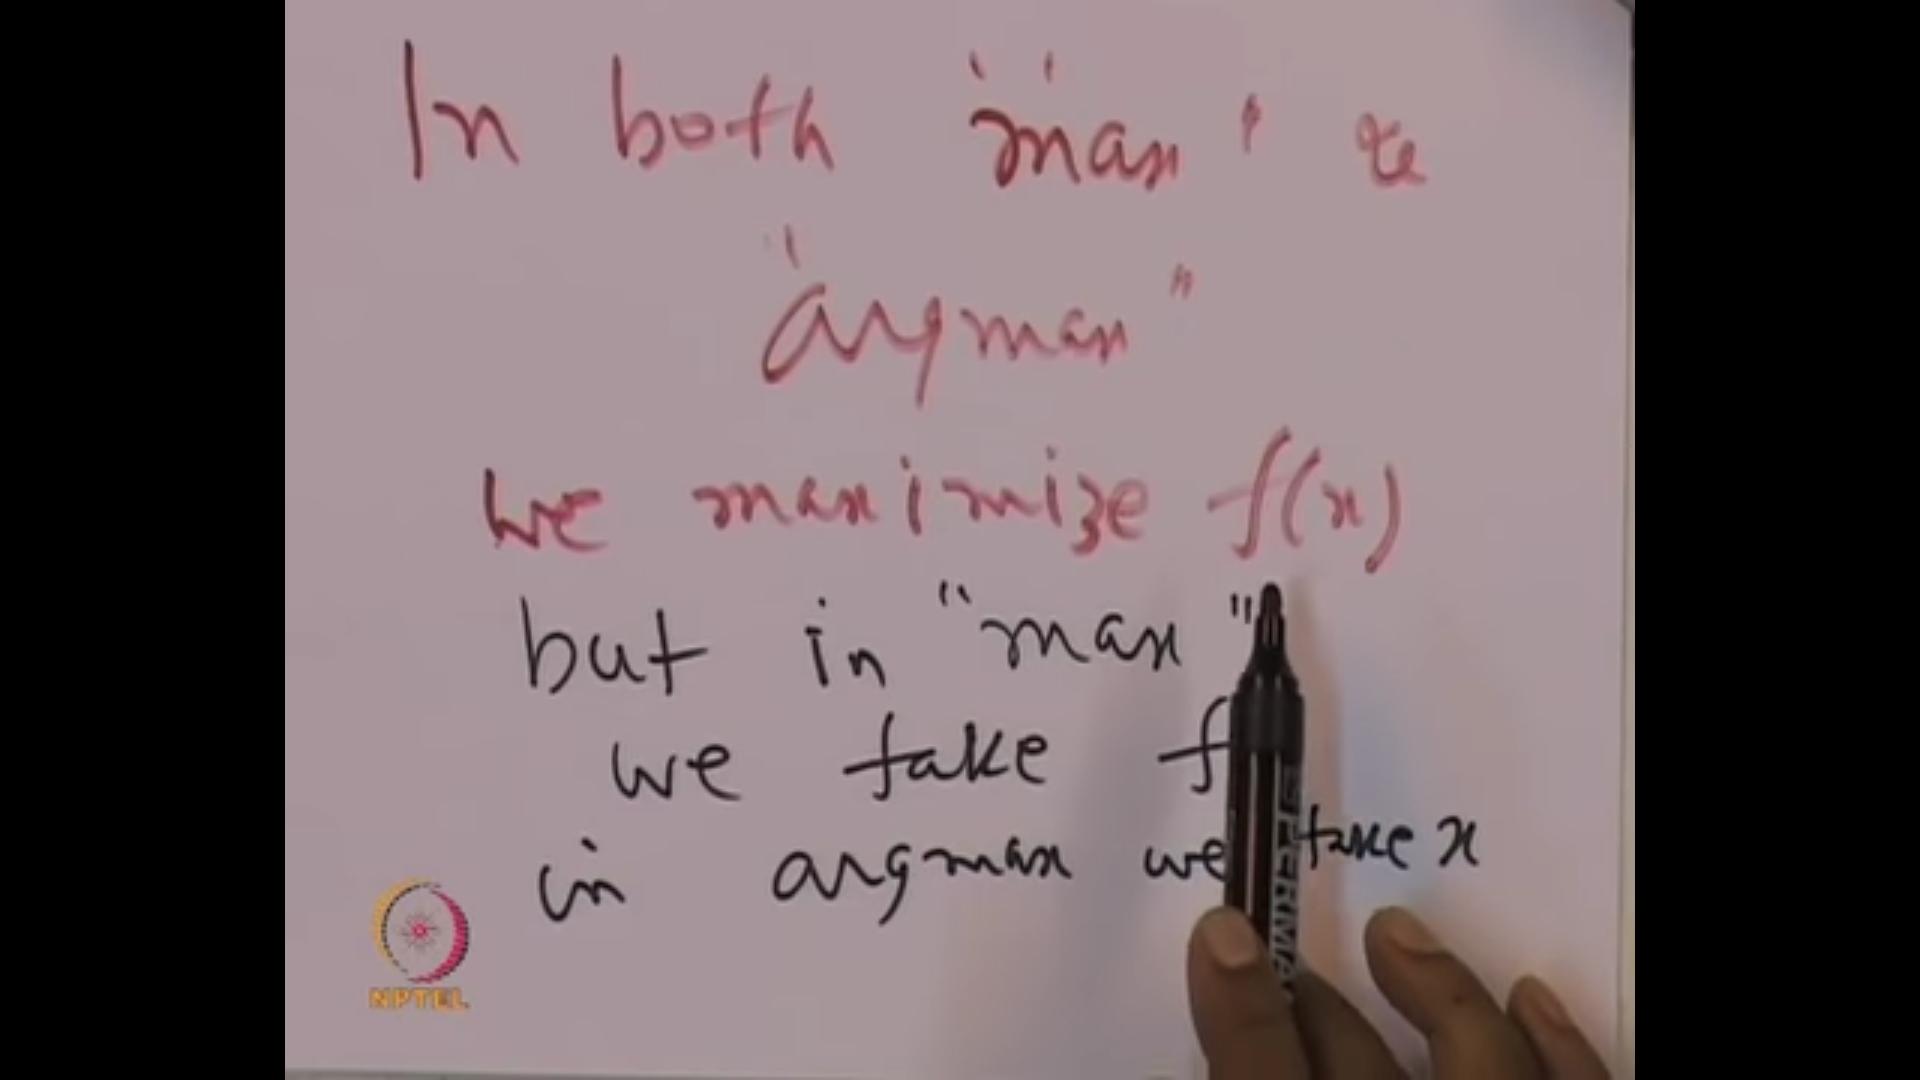 In both "max" &
"argmax"
we maximize f(x)
but in "max"
we take f
in argmax we take x
NPTEL
PERMA